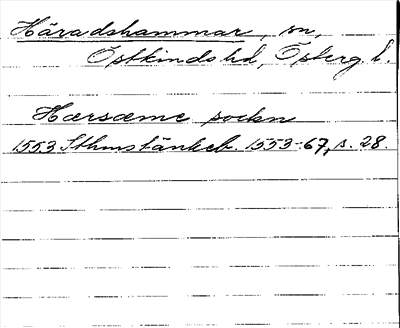 Häradshammar, sn,
Östkinds hd, Österg. l.
Hærsæme sockn
1553 Sthms tänkeb. 1553-67, s. 28.